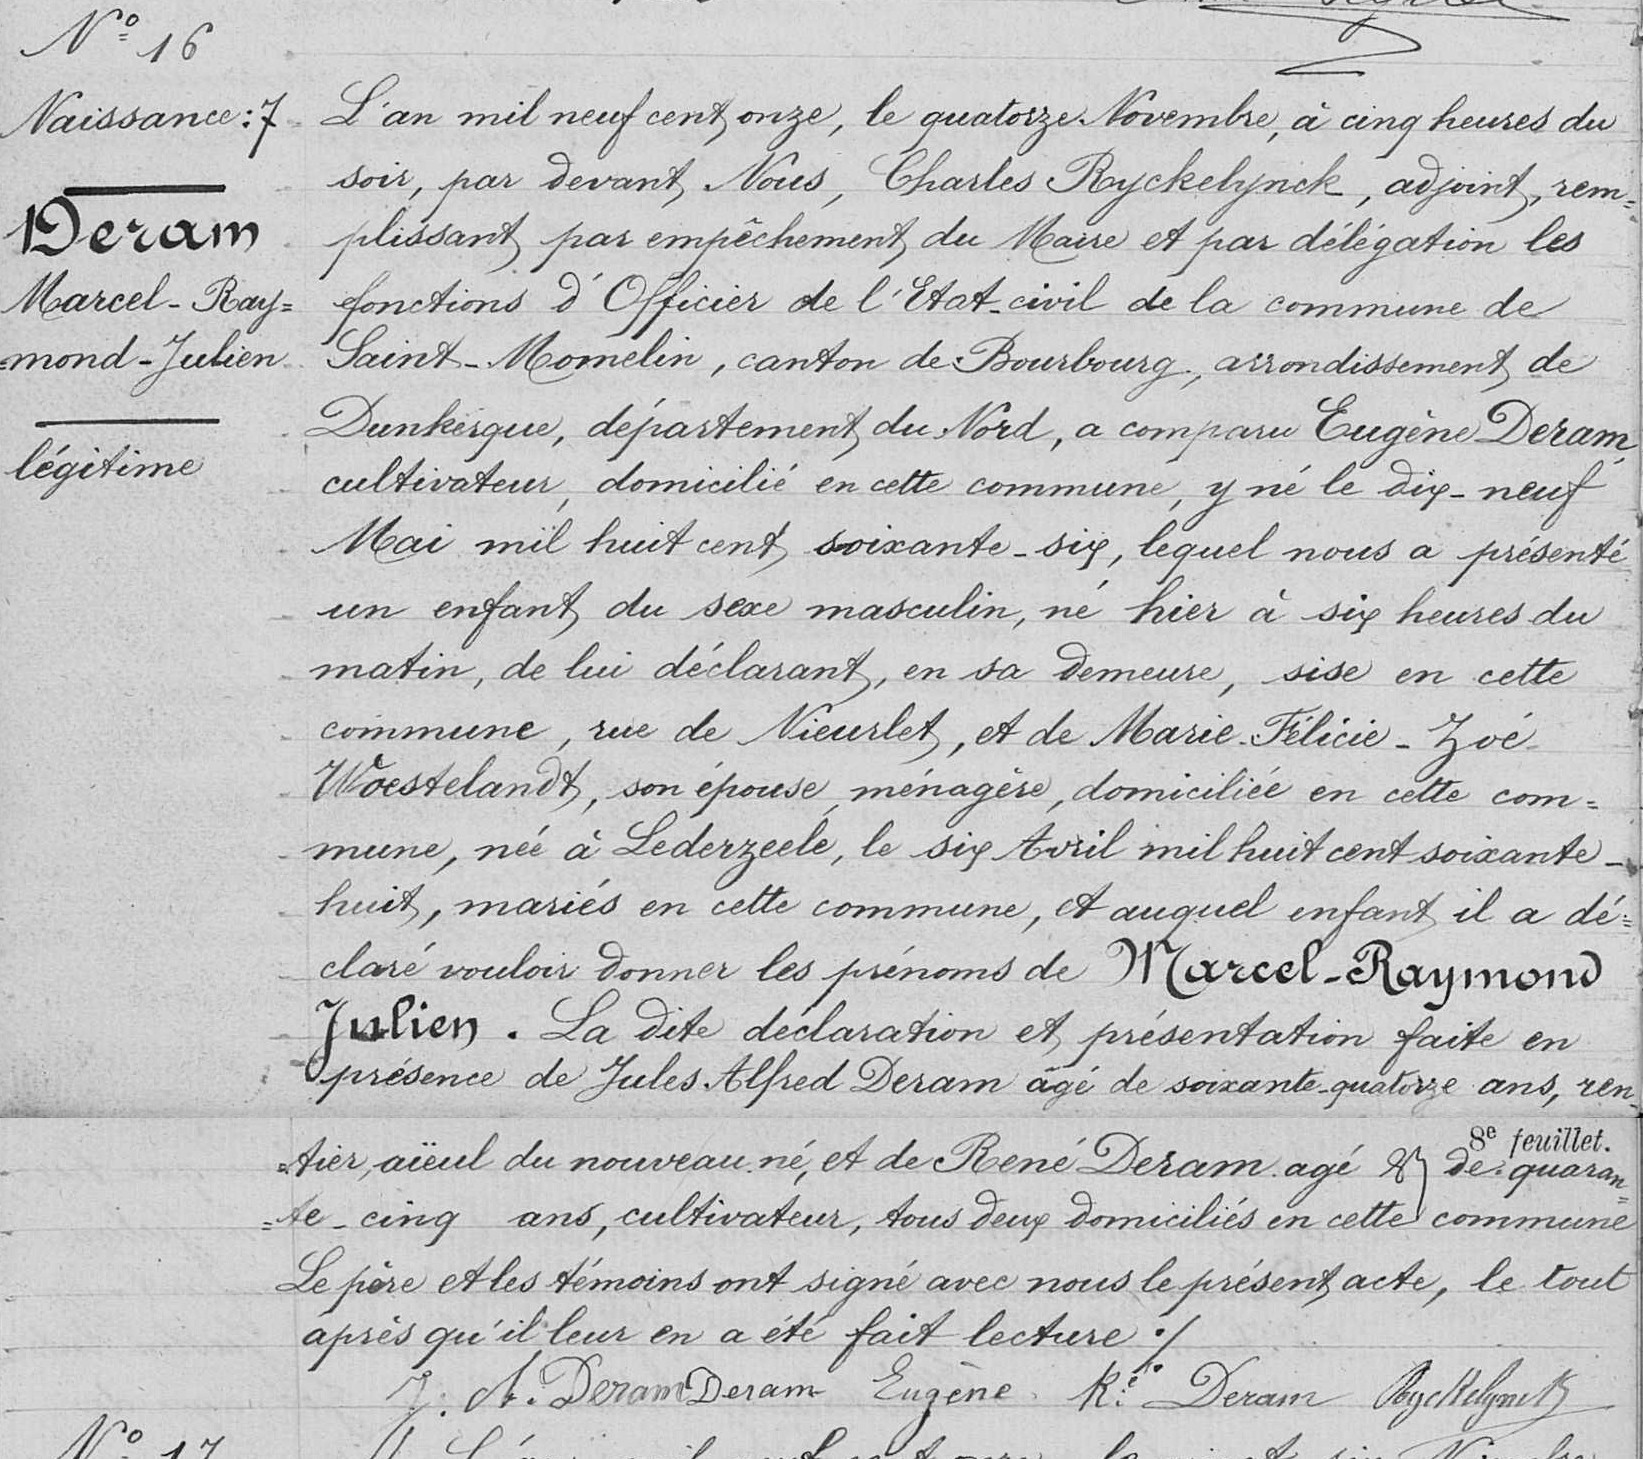 N° 16
Naissance: 7
Deram
Marcel-Ray=
=mond-Julien
légitime
L'an mil neuf cent onze, le quatorze Novembre, à cinq heures du
soir, par devant Nous, Charles Ryckelynck, adjoint, rem=
plissant par empêchement du Maire et par délégation les
fonctions d'Officier de l'Etat-civil de la commune de
Saint-Momelin, canton de Bourbourg, arrondissement de
Dunkerque, département du Nord, a comparu Eugène Deram,
cultivateur, domicilié en cette commune, y né le dix-neuf
Mai mil huit cent soixante-six, lequel nous a présenté
un enfant du sexe masculin, né hier à six heures du
matin, de lui déclarant, en sa demeure, sise en cette
commune, rue de Nieurlet, et de Marie-Félicie-Zoé
Woestelandt, son épouse, ménagère, domiciliée en cette com=
mune, née à Lederzeele, le six Avril mil huit cent soixante-
huit, mariés en cette commune, et auquel enfant il a dé=
claré vouloir donner les prénoms de Marcel-Raymond
Julien. La dite déclaration et présentation faite en
présence de Jules Alfred Deram âgé de soixante-quatorze ans, ren
8e feuillet.
=tier, aïeul du nouveau né, et de René Deram agé de quaran=
=te-cinq ans, cultivateur, tous deux domiciliés en cette commune
Le père et les témoins ont signé avec nous le présent acte, le tout
après qu'il leur en a été fait lecture ./
J. A. Deram Deram Eugène Ré Deram Ryckelynck
N° 17